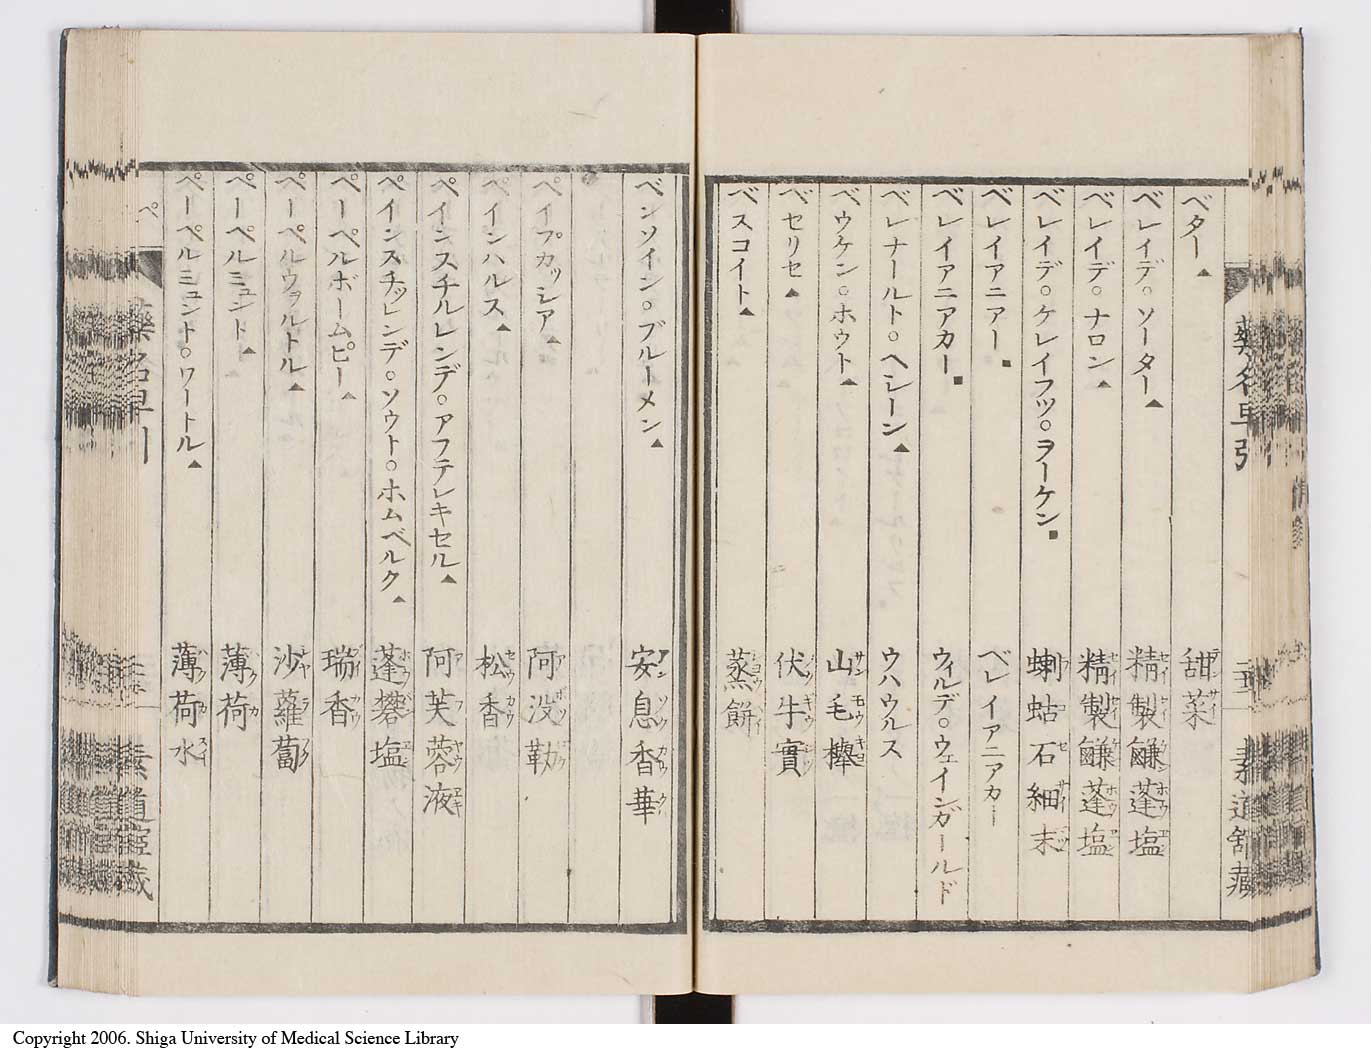 ベター▲ 甜菜
ベレイデ。ソーター▲ 精製鹻蓬塩
ベレイデ。ナロン▲ 精製鹻蓬塩
ベレイデ。ケレイフツ。ヲーケン■ 蝲蛄石細末
ベレイアニアー■ ベレイアニアカー
ベレイアニアカー■ ウィルデ。ウェインガールド
ベレナールト。ヘレーン▲ ウハウルス
ベウケン。ホウト▲ 山毛櫸
ベセリセ▲ 伏牛實
ベスコイト▲ 蒸餅
ベンソイン。ブルーメン▲ 安息香華
ペイプカッシア▲ 阿没勒
ペインハルス▲ 松香
ペインスチルレンデ。アフテレキセル▲ 阿芙蓉液
ペインスチッレンデ。ソウト。ホムベルク▲ 蓬礬塩
ペーペルボームピー▲ 瑞香
ペーペルウァルトル▲ 沙蘿蔔
ペーペルミュント▲ 薄荷
ペーペルミュント。ワートル▲ 薄荷水
ペ
Copyright 2006. Shiga University of Medical Science Library